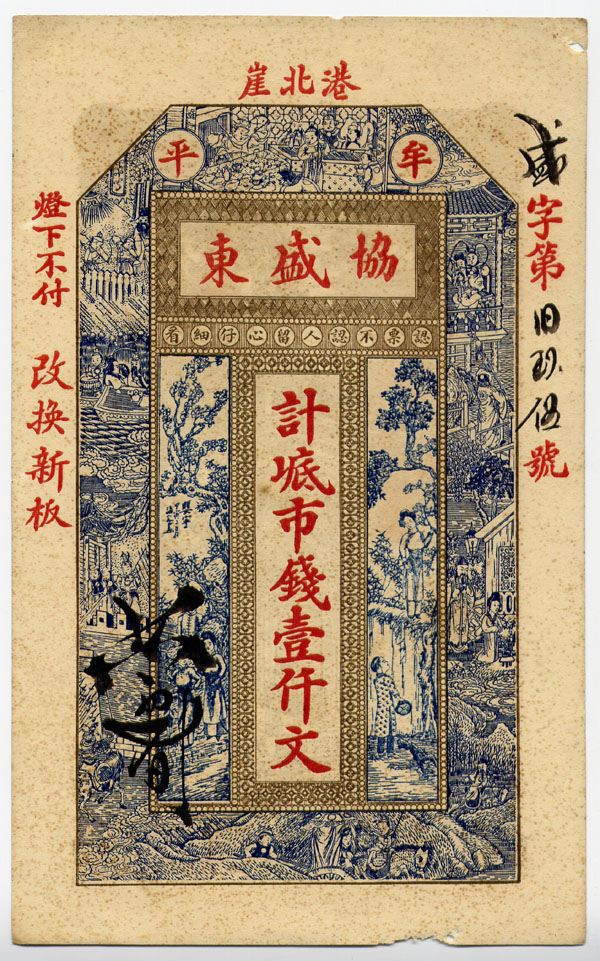 港北崖
牟平
協盛東
認票不認人留心仔細看
計市錢壹仟文
盛字第玖伍號
燈下不付
改換新板